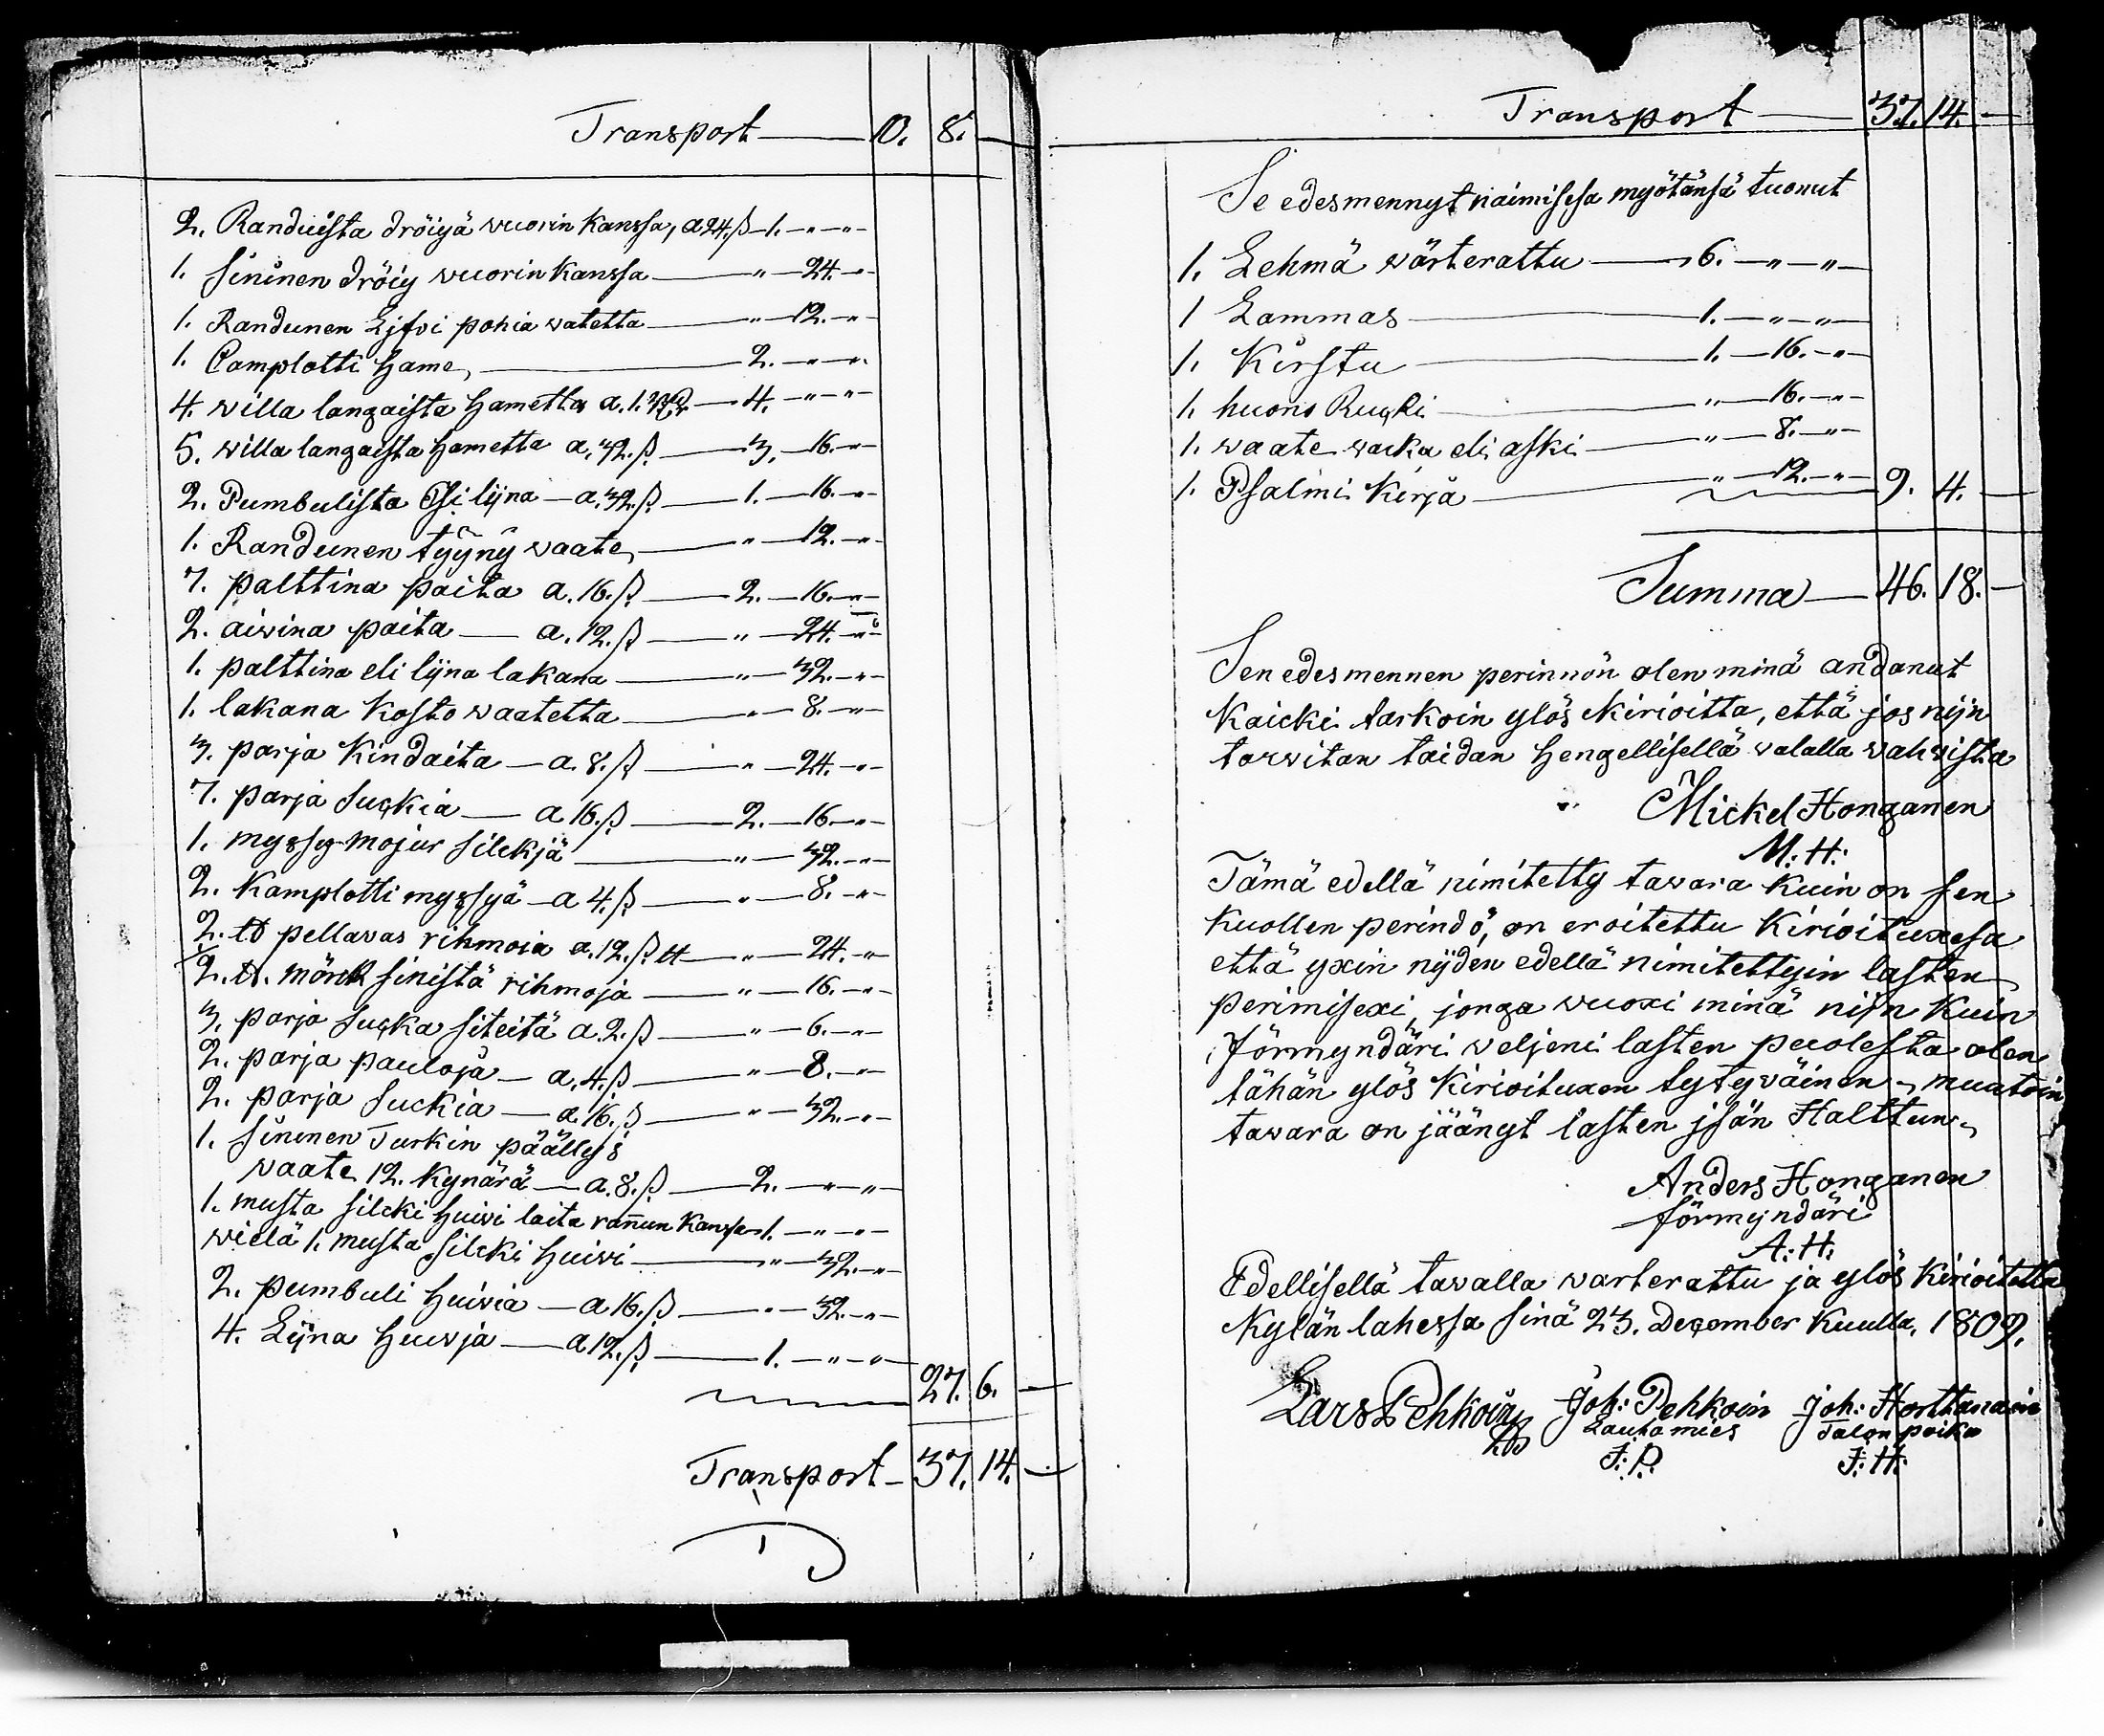 Transport — 10. 8. —
2. Randuista dröiyä wuorin kanssa, a 24. ß — 1. — " — "
1. sininen dröiy wuorin kanssa — " — 24. — "
1. Randunen Lifvi pohia watetta — " — 12. — "
1. Camplotti hame — 2. — " — "
4. willa langaista hametta a. 1. — 4. — " — "
5. willa langaista hametta a. 32. ß. — 3. — 16. — "
2. Pumbulista Esi lijna — a. 32. ß. — 1. — 16. — "
1. Randunen tyyny waate — " — 12. — "
7. palttina paita a. 16. ß. — 2. — 16. — "
2. aiwina paita — a. 12. ß — " — 24. — "
1. palttina eli lijna lakana — " — 32. — "
1. lakana kosto waatetta — " — 8. — "
3. parja kindaita — a. 8. ß — " — 24. — "
7. parja suckia — a 16. ß — 2. — 16. — "
1. myssy mojur silckjä — " — 32. — "
2. Kamplotti myssyä — a 4. ß. — " — 8. — "
2. tt pellavas rihmoia a. 12. ß. tt — " — 24. — "
2. tt. mörk sinistä rihmoja — " — 16. — "
3. parja sucka siteitä a. 2. ß — " — 6. — "
2. parja pauloja — a. 4. ß — " — 8. — "
2. parja suckia — a. 16. ß — " — 32. — "
1. sininen Turkin päällys
waate 12. kynärä — a. 8. ß — 2. — " — "
1. musta silcki huivi laita rannun kanssa — 1. — " — "
wielä 1. musta silcki huivi — " — 32. — "
2. pumbuli huivia — a 16. ß — " — 32. — "
4. Lijna huivja — a 12. ß — 1. — " — "
27. 6. —
Transport — 37. 14. —
Transport — 37. 14. —
Se edesmennyt naimisesa myötänsä tuonut
1. Lehmä wärterattu — 6. — " — "
1 Lammas — 1. — " — "
1. Kirstu — 1. — 16. — "
1. huono Rucki — " — 16. — "
1. waate wacka eli aski — " — 8. — "
1. Psalmi kirja — " — 12. — " — 9. 4. —
Summa — 46. 18. —
Sen edesmennen perinnön olen minä andanut
kaicki tarkoin ylös kirioitta, että jos nijn
tarvitan taidan hengellisellä walalla wahvista
Mickel Honganen
M: H:
Tämä edellä nimitetty tawara kuin on sen
kuollen perindö, on eroitettu kirioituxesa
että yxin nijden edellä nimitettyin lasten
perimisexi, jonga wuoxi minä nijn kuin
förmyndäri weljeni lasten puolesta olen
tähän ylös kirioituxen tytyväinen, muutoin
tawara on jäänyt lasten jsän Halttun,
Anders Honganen
förmyndäri
A: H:
Edellisellä tawalla warterattu ja ylös kirioitettu
Kylän lahessa sinä 23. December kuulla. 1809.
Lars Pehkoin Joh: Pehkoin Joh: Horttanain
Lautamies Talonpoika
J: P: J: H: